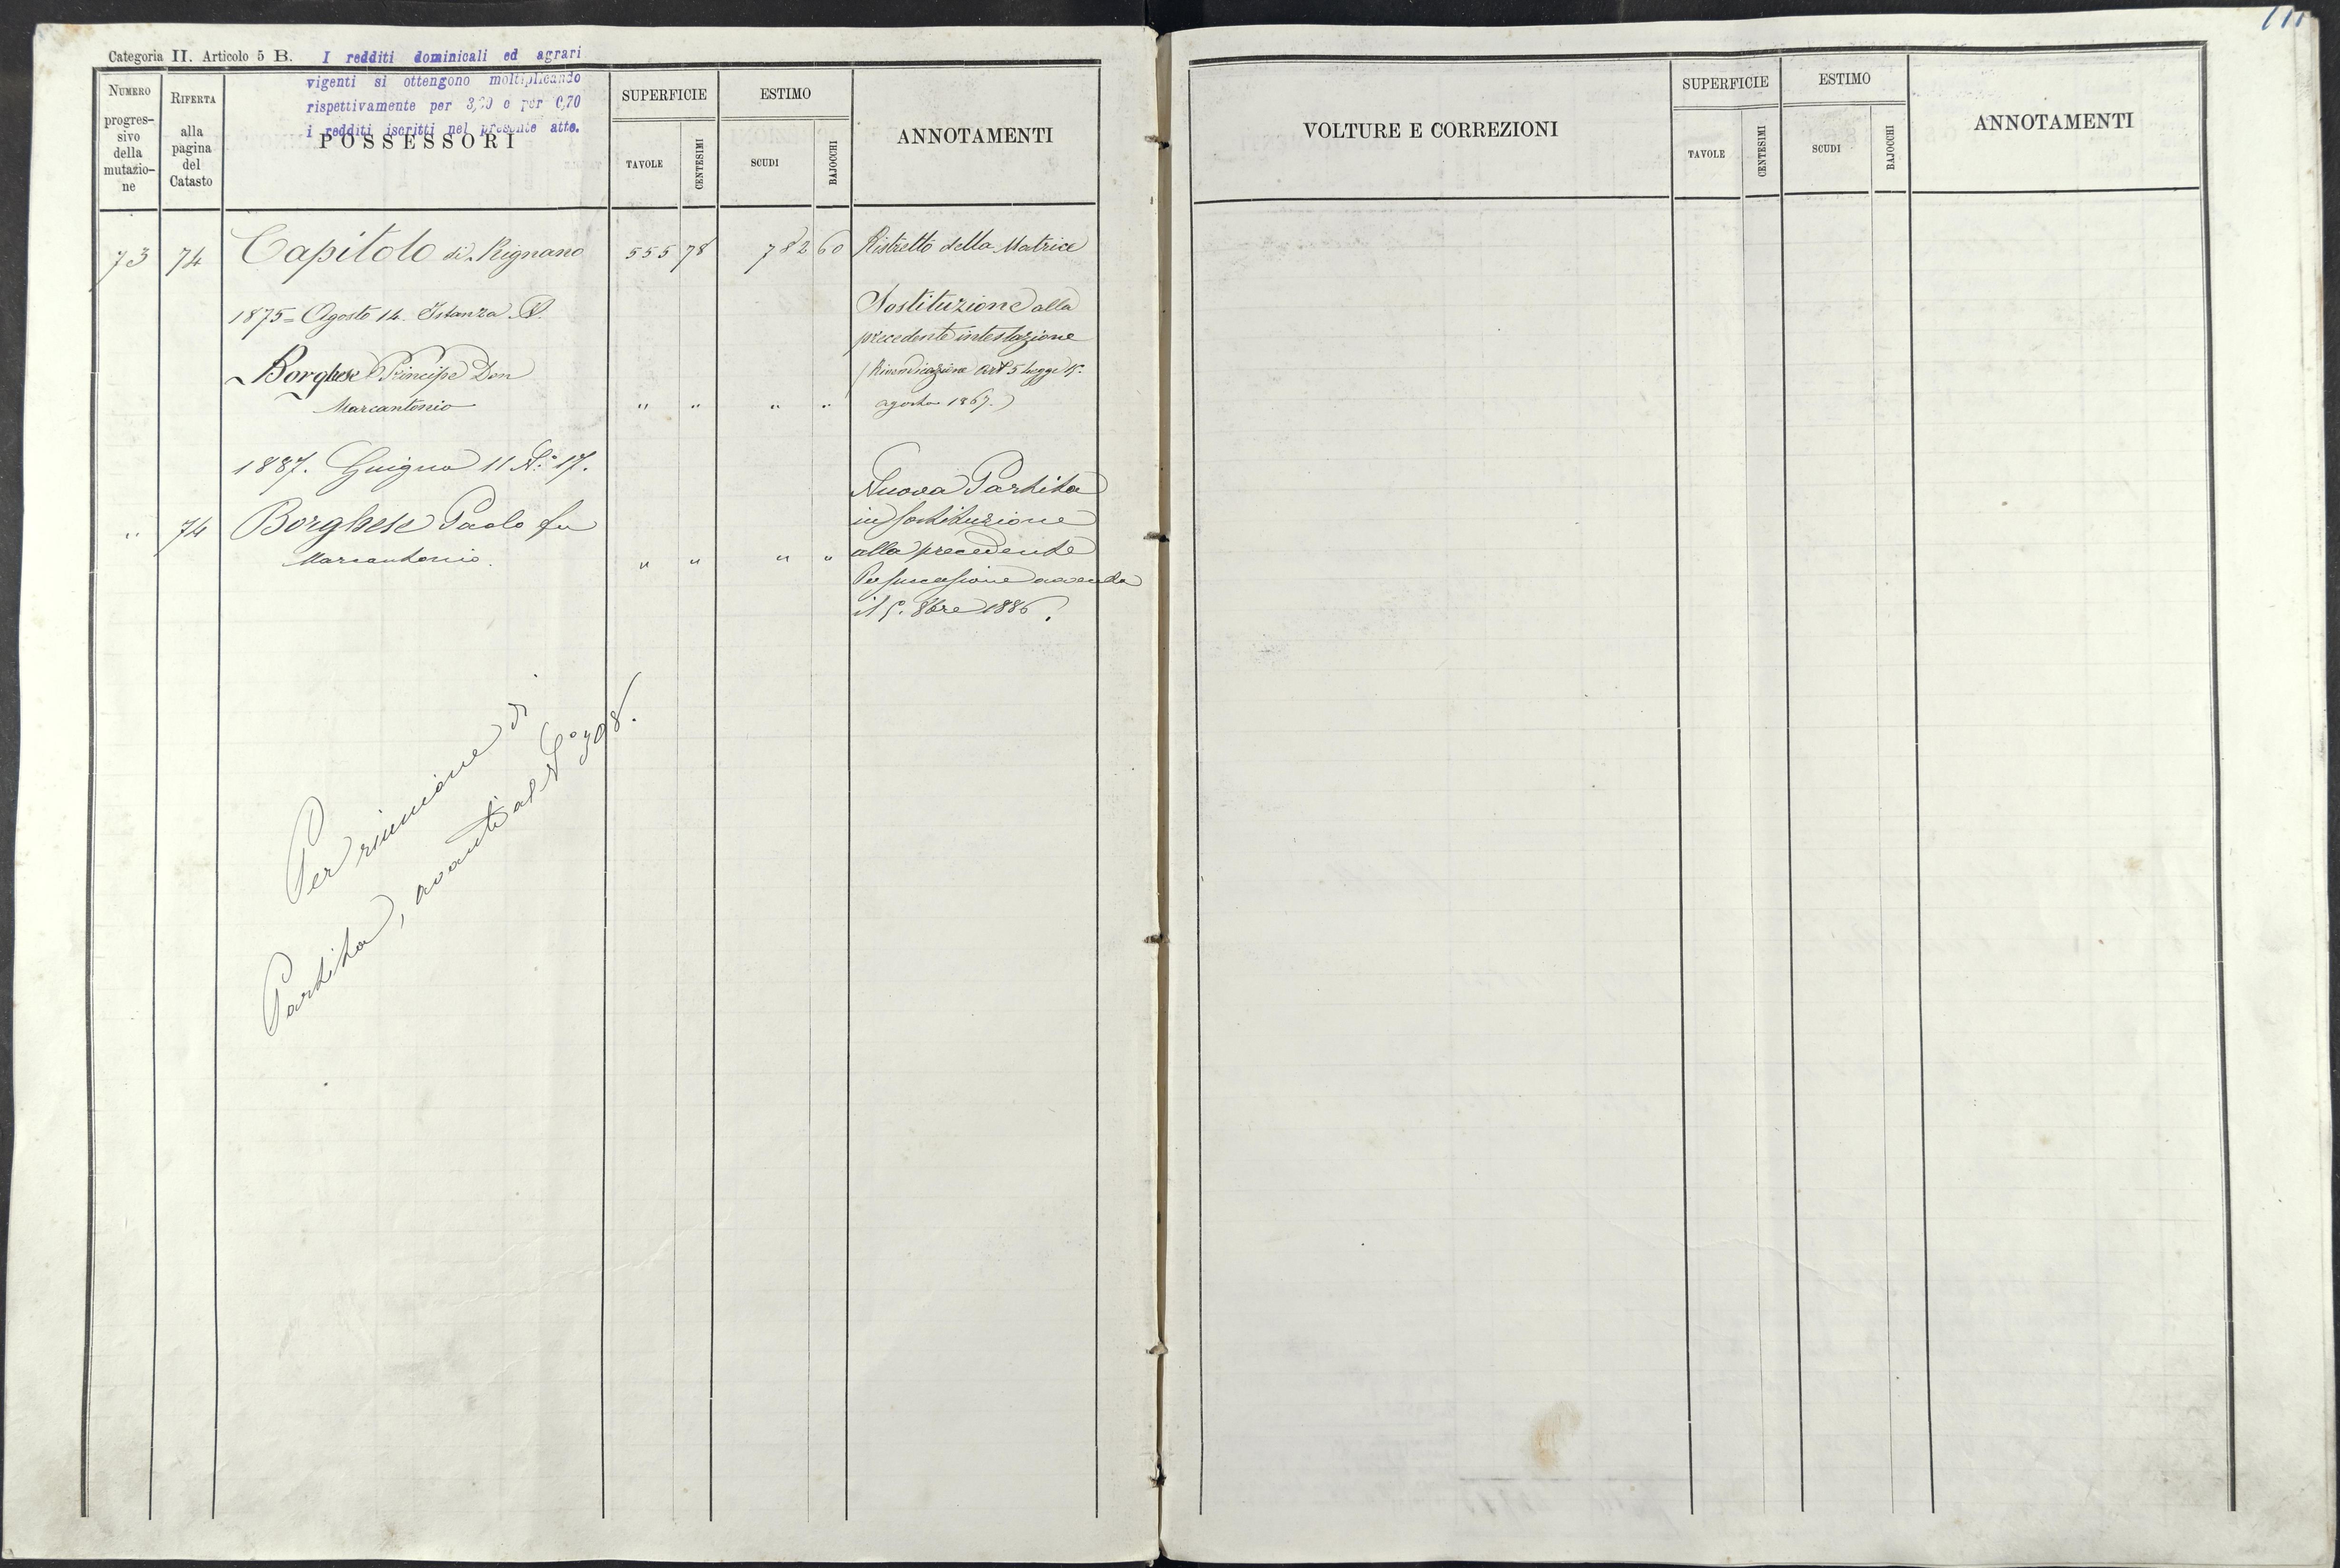 Categoria II. Articolo 5 B.
I redditi dominicali ed agrari
vigenti si ottengono moltiplicando
rispettivamente per e per 0,70
i redditi iscritti nel presente atto.
NUMERO
progres-
sivo
della
mutazio-
ne
RIFERTA
alla
pagina
del
Catasto
POSSESSORI
SUPERFICIE
TAVOLE
CENTESIMI
ESTIMO
SCUDI
BAJOCCHI
ANNOTAMENTI
73 74 Capitolo di Rignano 555 78 782 60 Ristretto della Matrice
1875= Agosto 14. Istanza
Sostituzione alla
precedente intestazione
Borghese Principe Don
(Rivendicazione art 5 legge 15.
Marcantonio " " " " agosto 1867.)
1887. Giugno 11 N.° 17.
Nuova Partita
" 74 Borghese Paolo fu
in sostituzione
Marcantonio. " " " " alla precedente
Per successione avvenuta
il 5. 8bre 1886.
Per riunione di
Partita, avanti al N° 308.
VOLTURE E CORREZIONI
SUPERFICIE
TAVOLE
CENTESIMI
ESTIMO
SCUDI
BAJOCCHI
ANNOTAMENTI